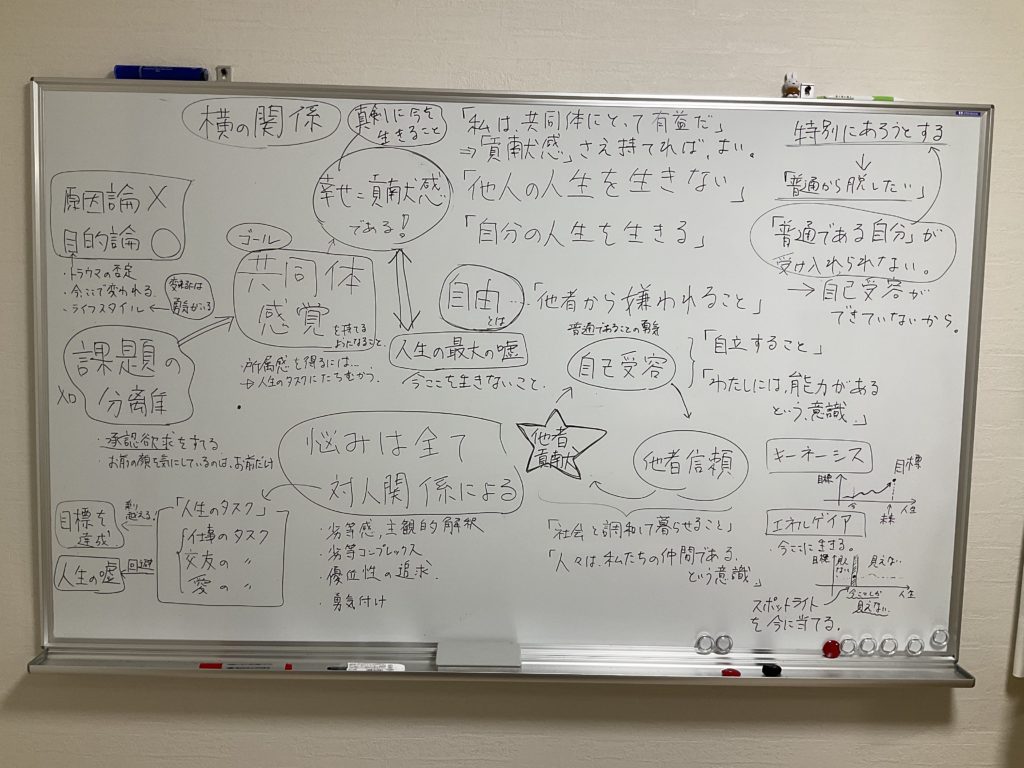 横の関係
真剣に今を
生きること
「私は、共同体にとって有益だ」
⇒「貢献感」さえ持てれば、よい。
特別にあろうとする
↓
「普通から脱したい」
原因論 ×
目的論 ○
幸せ=貢献感
である!
「他人の人生を生きない」
「自分の人生を生きる」
「普通である自分」が
受け入れられない。
→ 自己受容が
できていないから。
・トラウマの否定
・今ここで変われる
・ライフスタイル
変われるは
勇気がいる
ゴール
共同体
感覚
を持てる
おとなになること。
・所属感を得るには…
⇒人生のタスクにたちむかう。
自由
とは
… 「他者から嫌われること」
人生の最大の嘘
今ここを生きないこと。
普通であることの勇気
自己受容
「自立すること」
「わたしには、能力がある
という、意識」
課題の
分離
・承認欲求をすてる
・お前の顔を気にしているのは、お前だけ
悩みは全て
対人関係による
・劣等感、主観的解釈
・劣等コンプレックス
・優位性の追求
・勇気付け
他者
貢献
他者信頼
「社会と調和して暮らせること」
「人々は、私たちの仲間である、
という意識」
目標を
達成
乗り
越える!
人生の嘘
回避
「人生のタスク」
仕事のタスク
交友の 〃
愛の 〃
キーネーシス
目標
目標
今
未来
人生
エネルゲイア
・今ここに生きる。
目標
見え
ない
見えない
人生
今ここしか
見えない
スポットライト
を今に当てる。